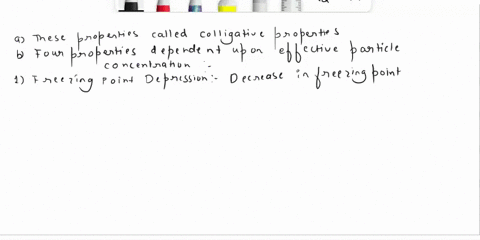 a) These properties called colligative properties
b) Four properties dependent upon effective particle
concentration :-
1) Freezing point Depression:- Decrease in freezing point